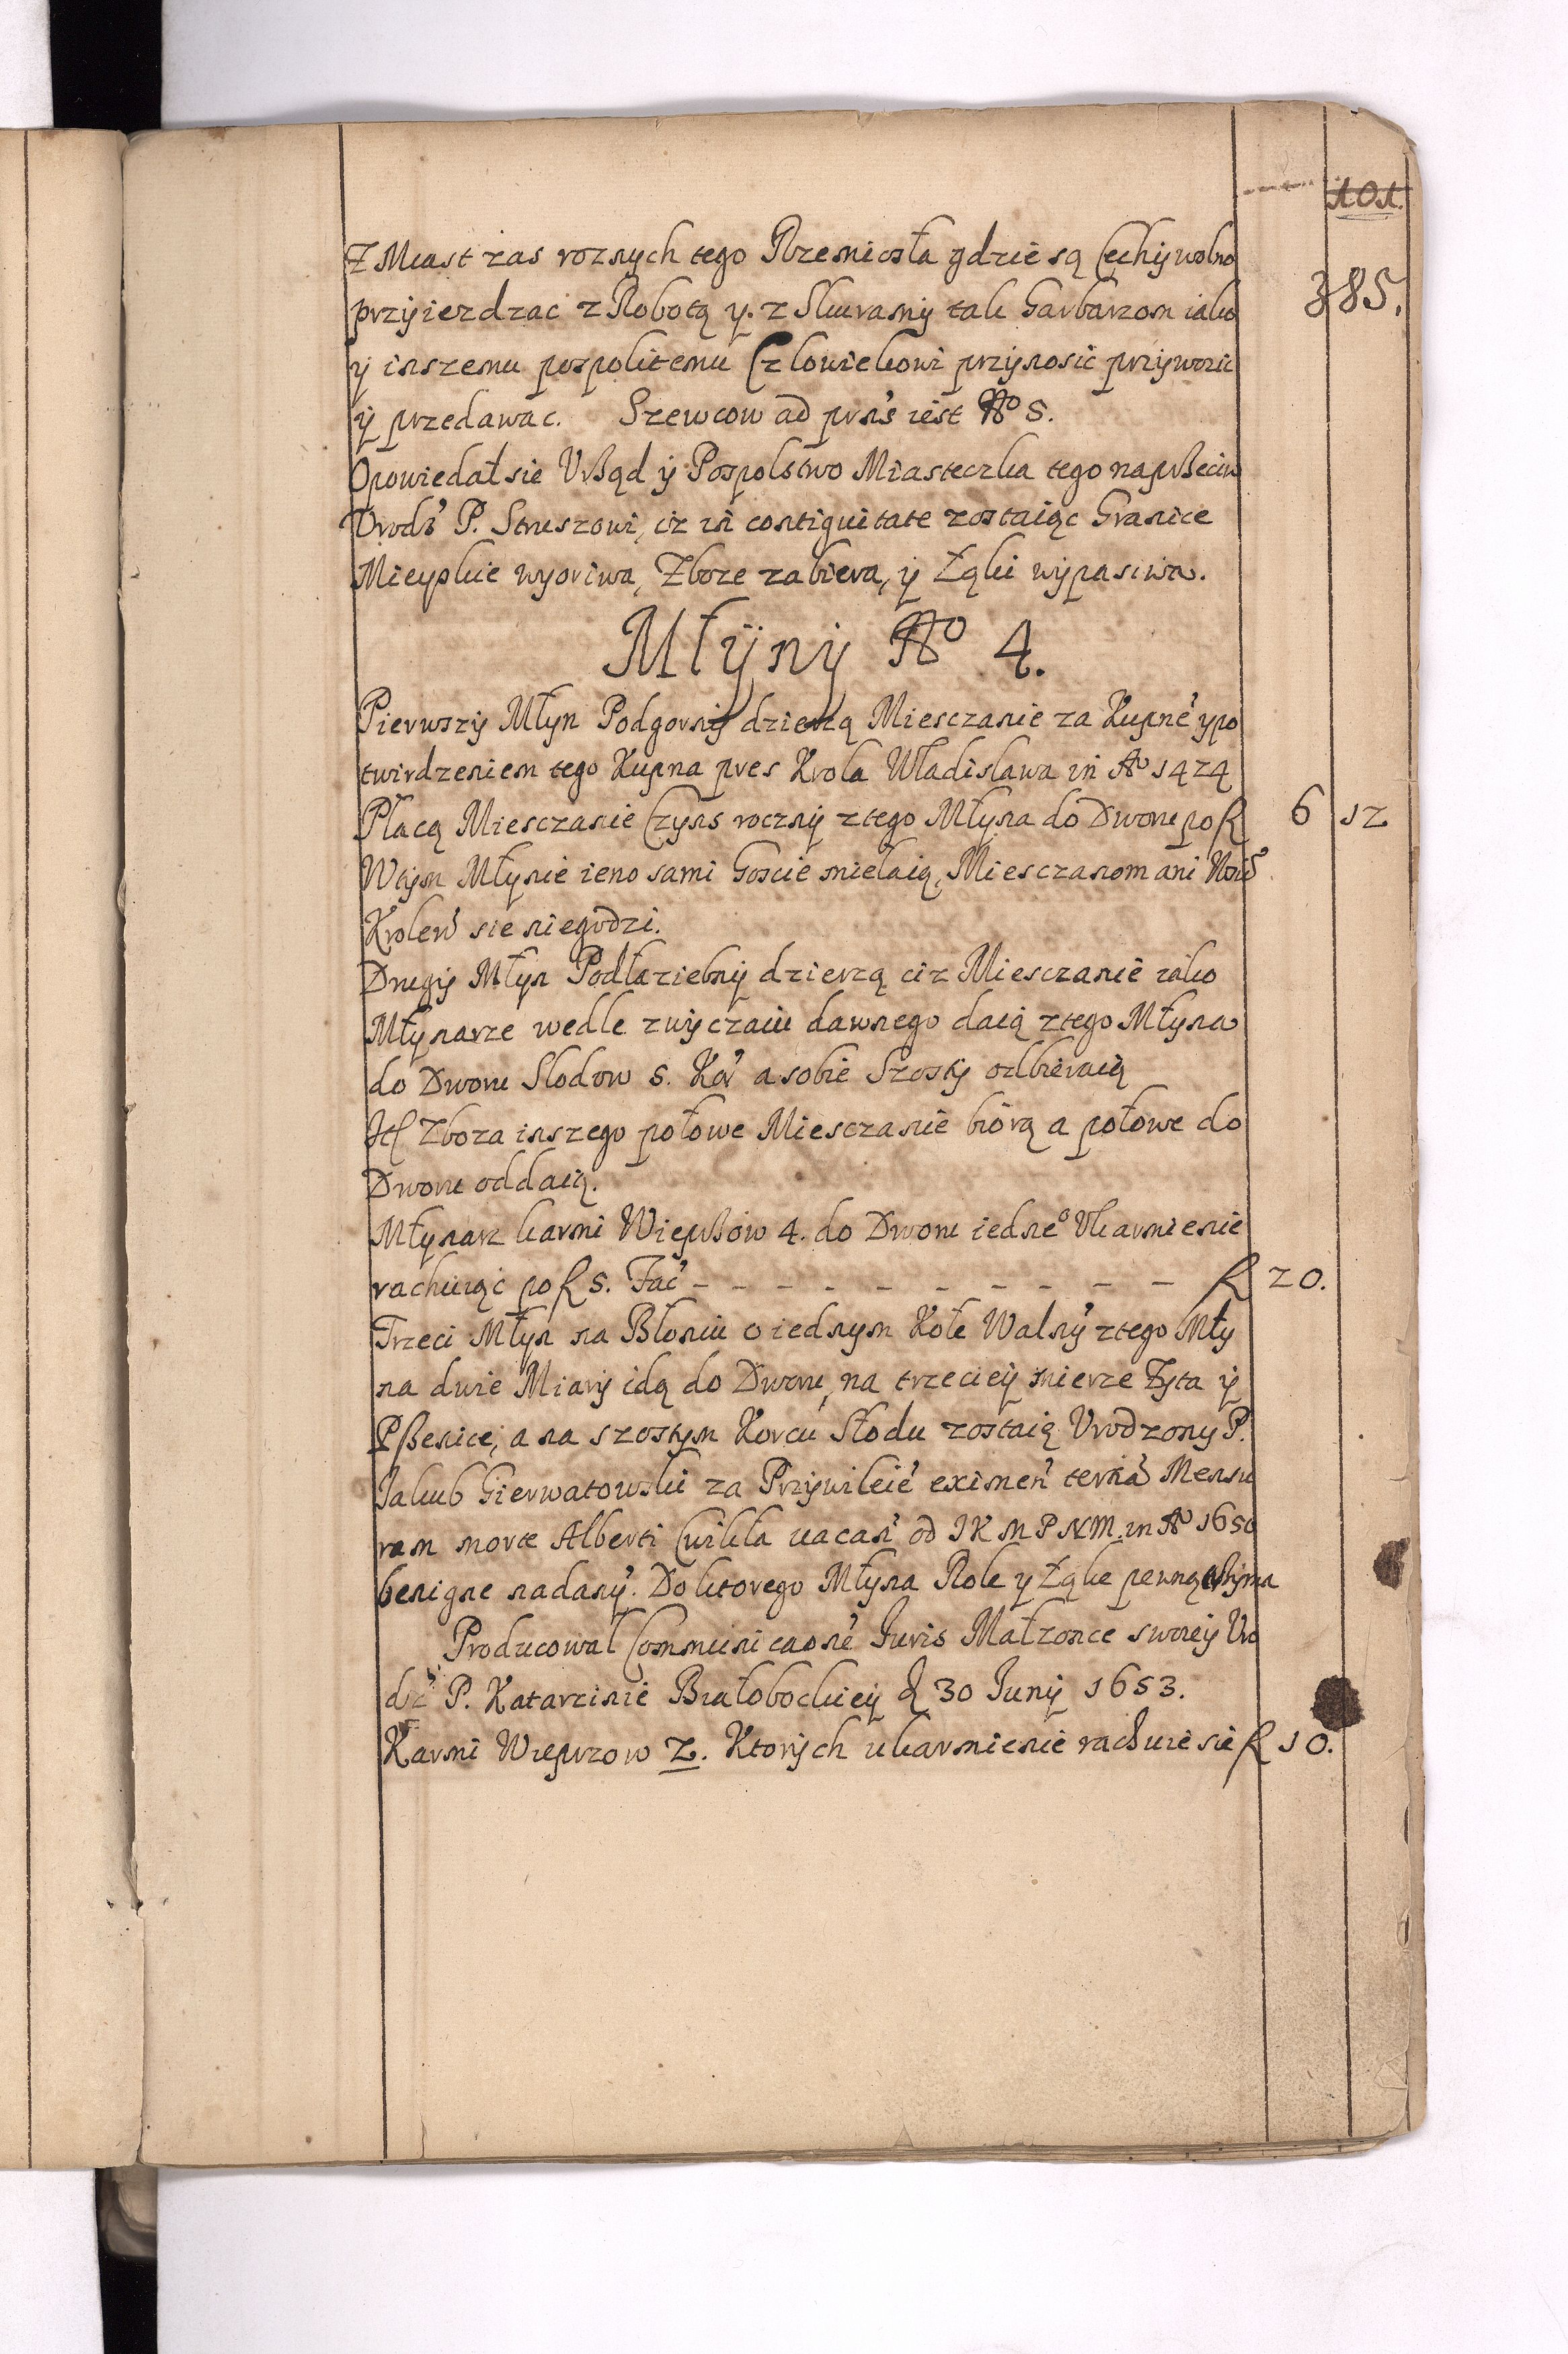 101.
385.
Z Miast zas roznych tego Rzemiosła gdzie są Cechy wolno
przyiezdzac z Robotą y. z Skuramy tak Garbarzom iako
y inszemu pospolitemu Czlowiekowi przynosic przywozic
y przedawac. Szewcow ad prńs iest No 5.
Opowiedał sie Vrząd y Pospolstwo Miasteczka tego naprzeciw
Vrodz P. Struszowi, iz in contiguitate zostaiąc Granice
Mieyskie wyoriwa, Zboze zabiera, y Łąki wypasiwa.
Młyny No 4.
Pierwszy Młyn Podgorny dzierzą Miesczanie za Kupné y po
twirdzeniem tego Kupna pres Krola Władislawa in Ao 1424
Płacą Miesczanie Czyns roczny z tego Młyna do Dworu po f 6 12
W tym Młynie ieno sami Goscie mielaią, Miesczanom ani
Krolew sie niegodzi.
Drugy Młyn Podłaziebny dzierzą ciz Miesczanie iako
Młynarze wedle zwyczaiu dawnego daią z tego Młyna
do Dworu Slodow 5. Kor a sobie Szosty odbieraią
Zboza inszego połowe Miesczanie biorą a połowe do
Dworu oddaią.
Młynarz karmi Wieprzow 4. do Dworu iedneo Vkarmienie
rachuiąc po f 5. Fać - - - - - - - - - - f 20.
Trzeci Młyn na Błoniu o iednym Kole Walny z tego Mły
na dwie Miary idą do Dworu, na trzeciey mierze Zyta y
Pszenice, a na szostym Korcu Słodu zostaią Vrodzony P.
Jakub Gierwatowski za Przywileié eximeń tertiá Mensu
ram morte Alberti Cwikła vacań od I K M P N M. in Ao 1650
benigne nadany. Do ktorego Młyna Role y Łąke pewną trzyma
Producował Communicaoné Juris Małzonce swoiey Vro
dz P. Katarzinie Białobockiey d 30 Juny 1653.
Karmi Wieprzow 2. Ktorych ukarmienie rachuie sie f 10.